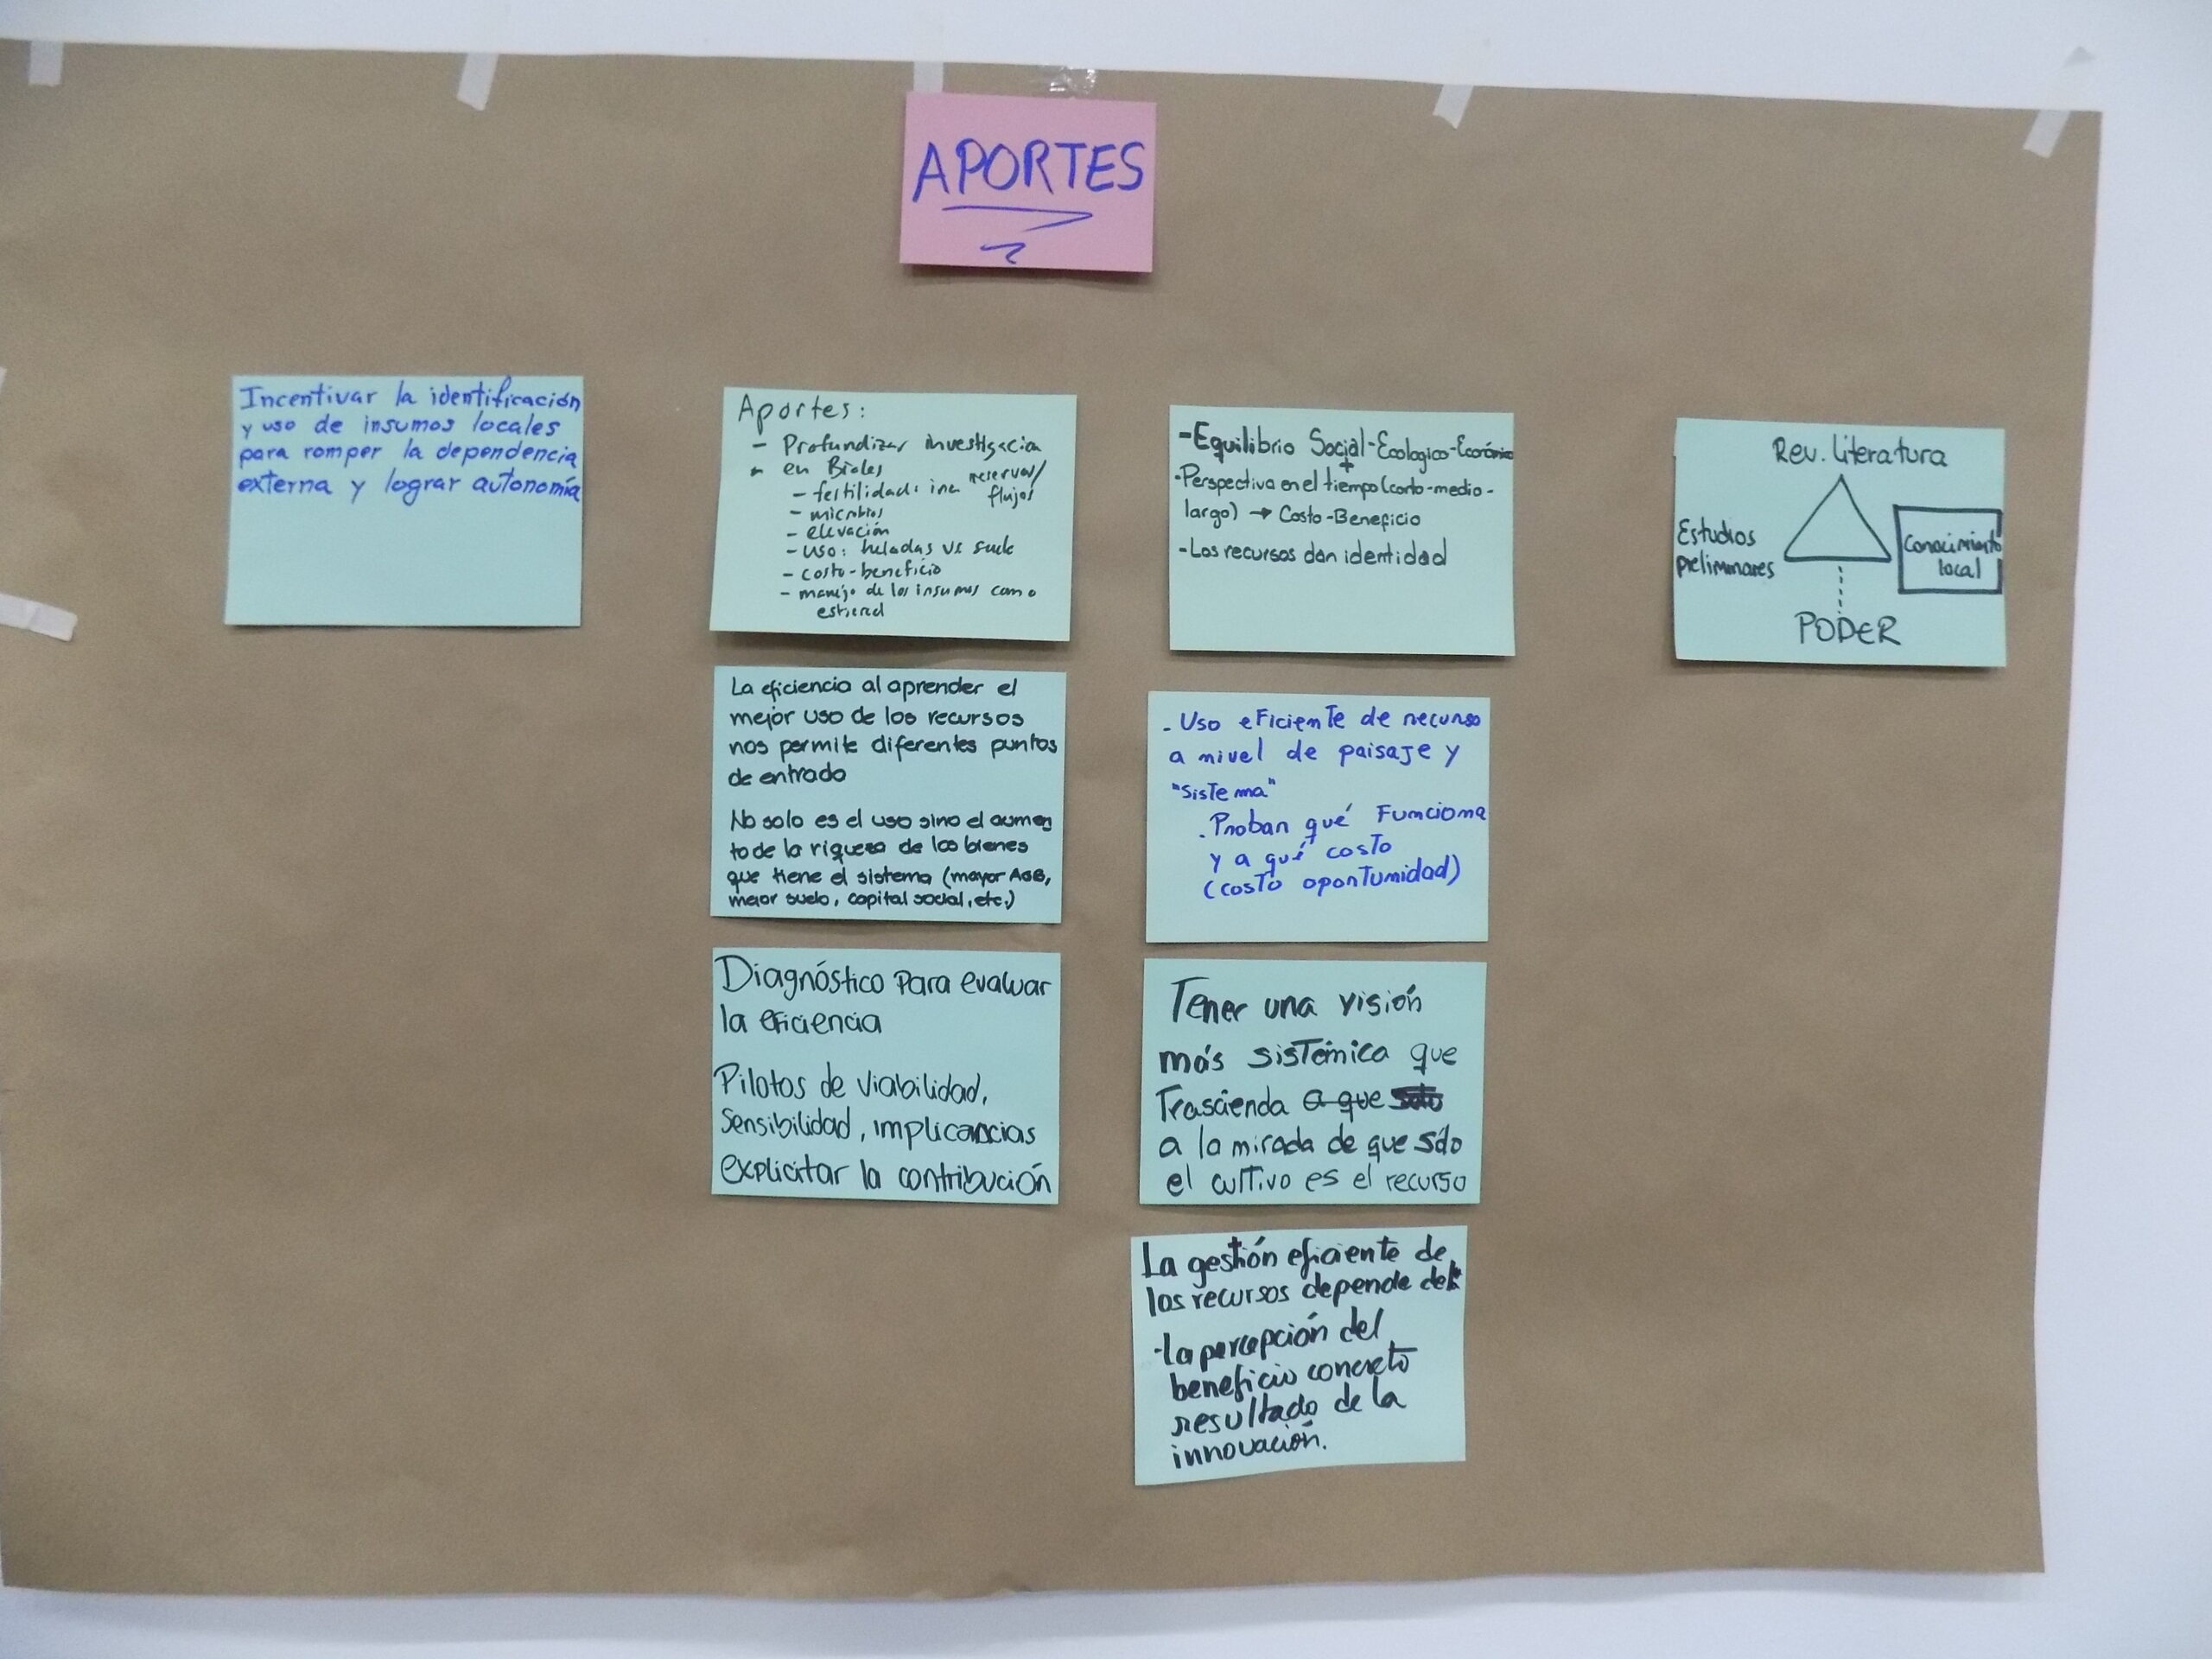 APORTES
Incentivar la identificación
y uso de insumos locales
para romper la dependencia
externa y lograr autonomía
Aportes:
- Profundizar investigacion
- en Bioles
- fertilidad: reservas/
flujos
- microbios
- elevación
- uso: heladas vs suelo
- costo-beneficio
- manejo de los insumos como
estiercol
La eficiencia al aprender el
mejor uso de los recursos
nos permite diferentes puntos
de entrada
No solo es el uso sino el aumen
to de la riqueza de los bienes
que tiene el sistema (mayor AGB,
mejor suelo, capital social, etc.)
Diagnóstico para evaluar
la eficiencia
Pilotos de viabilidad,
sensibilidad, implicancias
explicitar la contribución
- Equilibrio Social-Ecologico-Económico
+
- Perspectiva en el tiempo (corto-medio-
largo) → Costo-Beneficio
- Los recursos dan identidad
- Uso eficiente de recurso
a nivel de paisaje y
"sistema"
. Probar qué funciona
y a qué costo
(costo oportunidad)
Tener una visión
más sistémica que
Trascienda a que solo
a la mirada de que sólo
el cultivo es el recurso
La gestión eficiente de
los recursos depende de
- la percepción del
beneficio concreto
resultado de la
innovación.
Rev. Literatura
Estudios
preliminares
Conocimiento
local
PODER